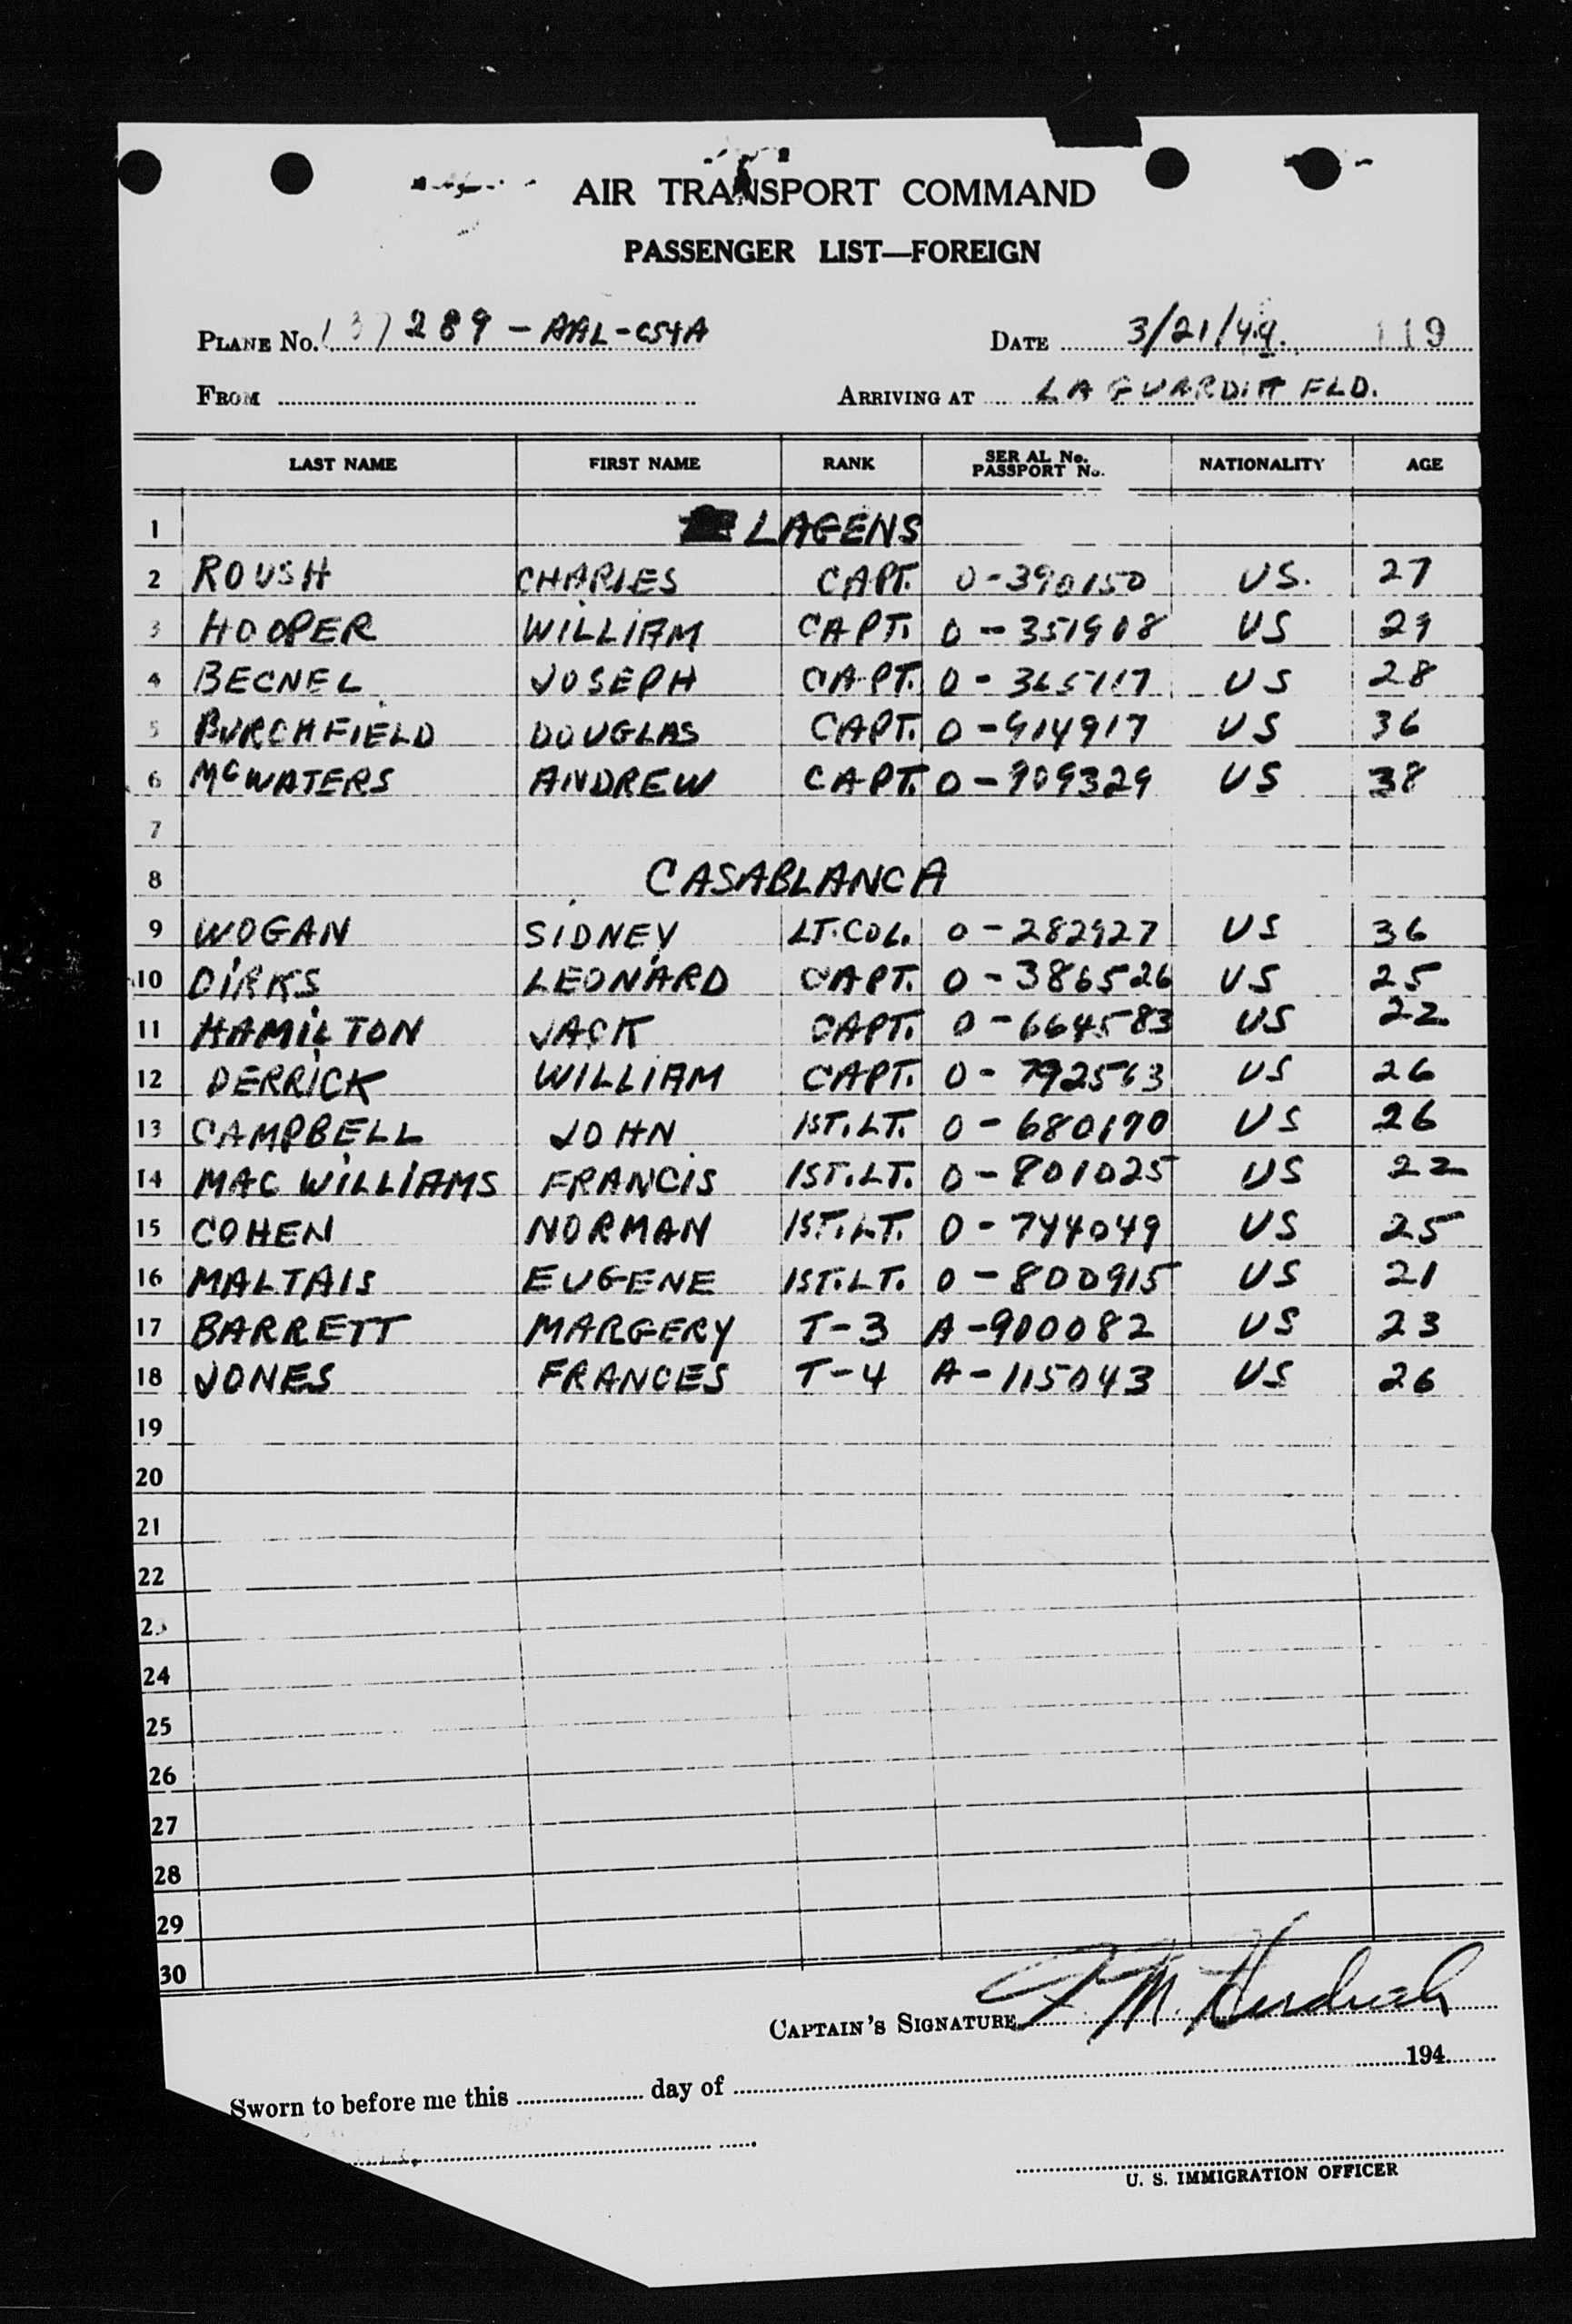 AIR TRANSPORT COMMAND
PASSENGER LIST—FOREIGN
PLANE No. 137289 - AAL - C54A DATE 3/21/44. 119
FROM ARRIVING AT LA GUARDIA FLD.
LAST NAME FIRST NAME RANK SER AL No. PASSPORT No. NATIONALITY AGE
1 LAGENS
2 ROUSH CHARLES CAPT. O-390150 US. 27
3 HOOPER WILLIAM CAPT. O-351908 US 29
4 BECNEL JOSEPH CAPT. O-365117 US 28
5 BURCHFIELD DOUGLAS CAPT. O-914917 US 36
6 McWATERS ANDREW CAPT. O-909329 US 38
7
8 CASABLANCA
9 WOGAN SIDNEY LT. COL. O-282927 US 36
10 DIRKS LEONARD CAPT. O-386526 US 25
11 HAMILTON JACK CAPT. O-664583 US 22
12 DERRICK WILLIAM CAPT. O-792563 US 26
13 CAMPBELL JOHN 1ST. LT. O-680190 US 26
14 MAC WILLIAMS FRANCIS 1ST. LT. O-801025 US 22
15 COHEN NORMAN 1ST. LT. O-744049 US 25
16 MALTAIS EUGENE 1ST. LT. O-800915 US 21
17 BARRETT MARGERY T-3 A-900082 US 23
18 JONES FRANCES T-4 A-115043 US 26
19
20
21
22
23
24
25
26
27
28
29
30
CAPTAIN'S SIGNATURE F. M.
Sworn to before me this day of 194
U. S. IMMIGRATION OFFICER